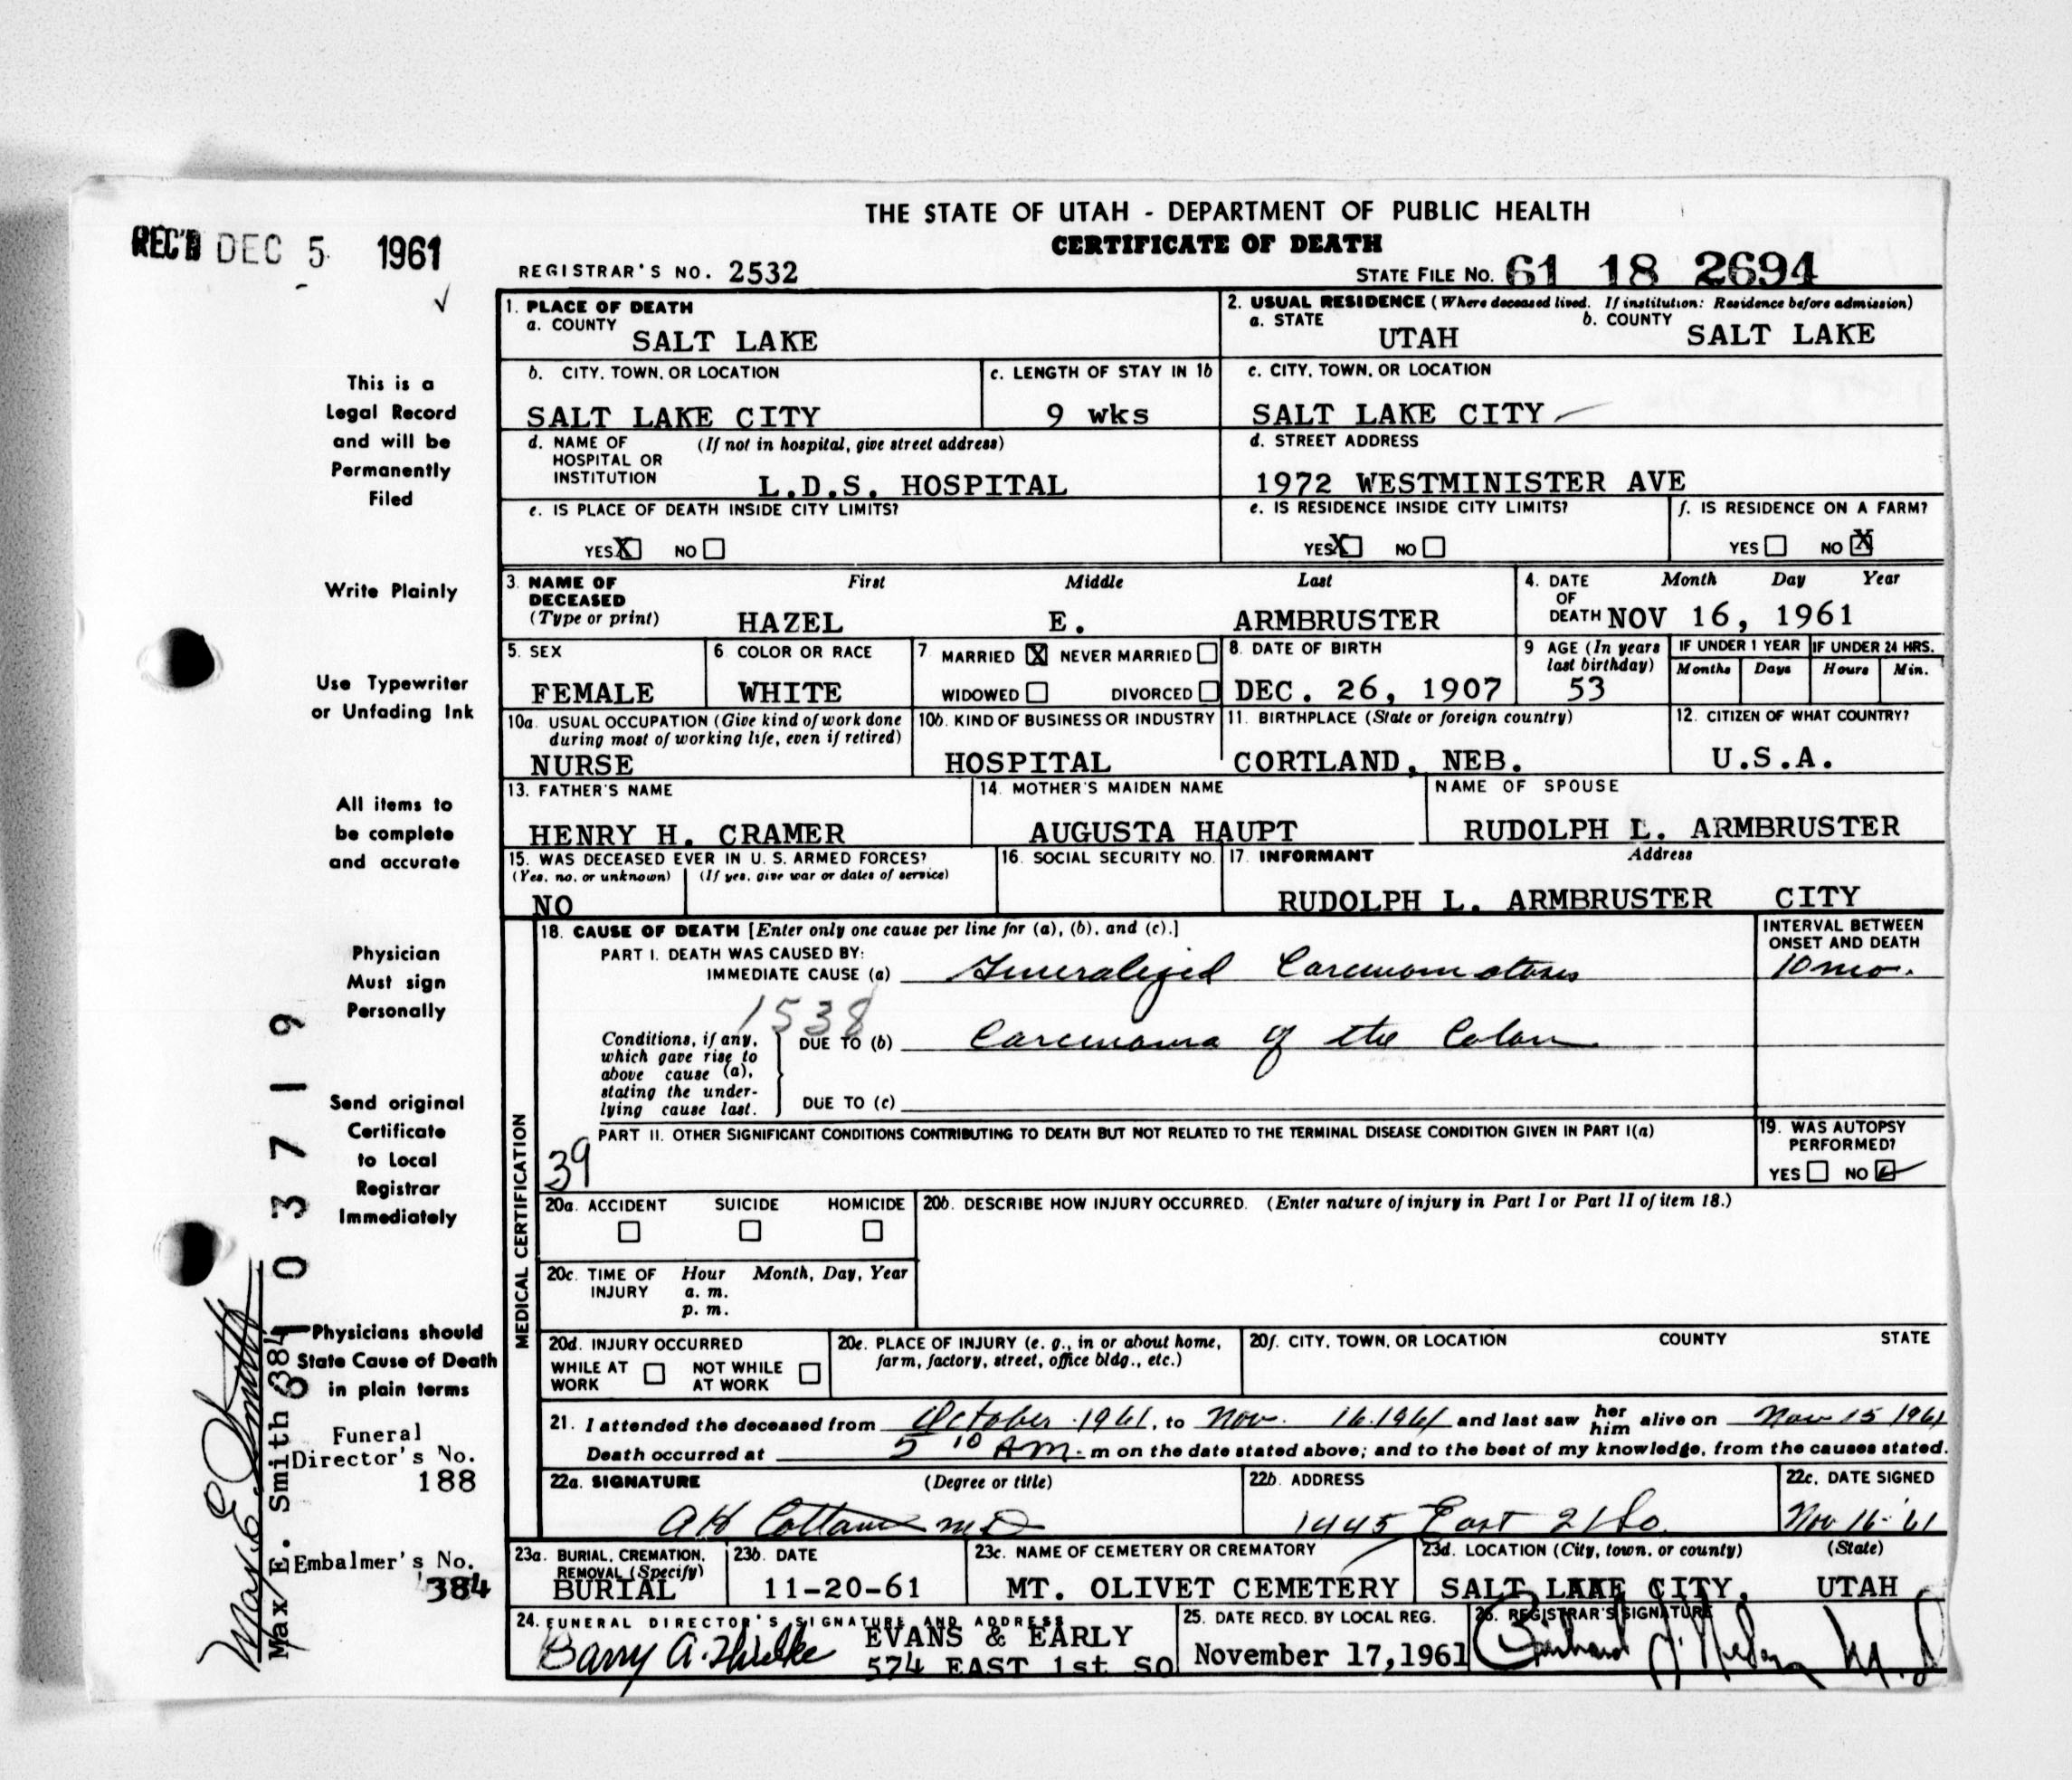 THE STATE OF UTAH - DEPARTMENT OF PUBLIC HEALTH
CERTIFICATE OF DEATH
REC'D DEC 5 1961
REGISTRAR'S NO. 2532
STATE FILE NO. 61 18 2694
1. PLACE OF DEATH
a. COUNTY
SALT LAKE
2. USUAL RESIDENCE (Where deceased lived. If institution: Residence before admission)
a. STATE UTAH b. COUNTY SALT LAKE
b. CITY, TOWN, OR LOCATION
SALT LAKE CITY
c. LENGTH OF STAY IN 1b
9 wks
c. CITY, TOWN, OR LOCATION
SALT LAKE CITY
d. NAME OF (If not in hospital, give street address)
HOSPITAL OR
INSTITUTION L.D.S. HOSPITAL
d. STREET ADDRESS
1972 WESTMINISTER AVE
e. IS PLACE OF DEATH INSIDE CITY LIMITS?
YES X NO
e. IS RESIDENCE INSIDE CITY LIMITS?
YES X NO
f. IS RESIDENCE ON A FARM?
YES NO X
3. NAME OF DECEASED (Type or print)
First Middle Last
HAZEL E. ARMBRUSTER
4. DATE OF DEATH
Month Day Year
NOV 16, 1961
5. SEX
FEMALE
6 COLOR OR RACE
WHITE
7 MARRIED X NEVER MARRIED
WIDOWED DIVORCED
8. DATE OF BIRTH
DEC. 26, 1907
9 AGE (In years last birthday)
53
IF UNDER 1 YEAR
Months Days
IF UNDER 24 HRS.
Hours Min.
10a. USUAL OCCUPATION (Give kind of work done
during most of working life, even if retired)
NURSE
10b. KIND OF BUSINESS OR INDUSTRY
HOSPITAL
11. BIRTHPLACE (State or foreign country)
CORTLAND, NEB.
12. CITIZEN OF WHAT COUNTRY?
U.S.A.
13. FATHER'S NAME
HENRY H. CRAMER
14. MOTHER'S MAIDEN NAME
AUGUSTA HAUPT
NAME OF SPOUSE
RUDOLPH L. ARMBRUSTER
15. WAS DECEASED EVER IN U. S. ARMED FORCES?
(Yes, no, or unknown) (If yes, give war or dates of service)
NO
16. SOCIAL SECURITY NO.
17. INFORMANT Address
RUDOLPH L. ARMBRUSTER CITY
MEDICAL CERTIFICATION
18. CAUSE OF DEATH [Enter only one cause per line for (a), (b), and (c).]
PART I. DEATH WAS CAUSED BY:
IMMEDIATE CAUSE (a) Generalized Carcinomatosis
INTERVAL BETWEEN
ONSET AND DEATH
10 mo.
1538
Conditions, if any,
which gave rise to
above cause (a),
stating the under-
lying cause last.
DUE TO (b) Carcinoma of the Colon
DUE TO (c)
PART II. OTHER SIGNIFICANT CONDITIONS CONTRIBUTING TO DEATH BUT NOT RELATED TO THE TERMINAL DISEASE CONDITION GIVEN IN PART I(a)
39
19. WAS AUTOPSY
PERFORMED?
YES NO
20a. ACCIDENT SUICIDE HOMICIDE
20b. DESCRIBE HOW INJURY OCCURRED. (Enter nature of injury in Part I or Part II of item 18.)
20c. TIME OF INJURY
Hour Month, Day, Year
a. m.
p. m.
20d. INJURY OCCURRED
WHILE AT WORK NOT WHILE AT WORK
20e. PLACE OF INJURY (e. g., in or about home,
farm, factory, street, office bldg., etc.)
20f. CITY, TOWN, OR LOCATION COUNTY STATE
21. I attended the deceased from October 1961, to Nov. 16 1961 and last saw her him alive on Nov 15 1961
Death occurred at 5 10 AM. m on the date stated above; and to the best of my knowledge, from the causes stated.
22a. SIGNATURE (Degree or title)
MD
22b. ADDRESS
1445 East 21 So.
22c. DATE SIGNED
Nov 16 '61
23a. BURIAL, CREMATION,
REMOVAL (Specify)
BURIAL
23b. DATE
11-20-61
23c. NAME OF CEMETERY OR CREMATORY
MT. OLIVET CEMETERY
23d. LOCATION (City, town, or county) (State)
SALT LAKE CITY, UTAH
24. FUNERAL DIRECTOR'S SIGNATURE AND ADDRESS
Barry A.
EVANS & EARLY
574 EAST 1st SO
25. DATE RECD. BY LOCAL REG.
November 17,1961
26. REGISTRAR'S SIGNATURE
M.D
This is a
Legal Record
and will be
Permanently
Filed
Write Plainly
Use Typewriter
or Unfading Ink
All items to
be complete
and accurate
Physician
Must sign
Personally
Send original
Certificate
to Local
Registrar
Immediately
Physicians should
State Cause of Death
in plain terms
Funeral
Director's No.
188
Embalmer's No.
384
Max E. Smith
Max E. Smith 384
61 03719